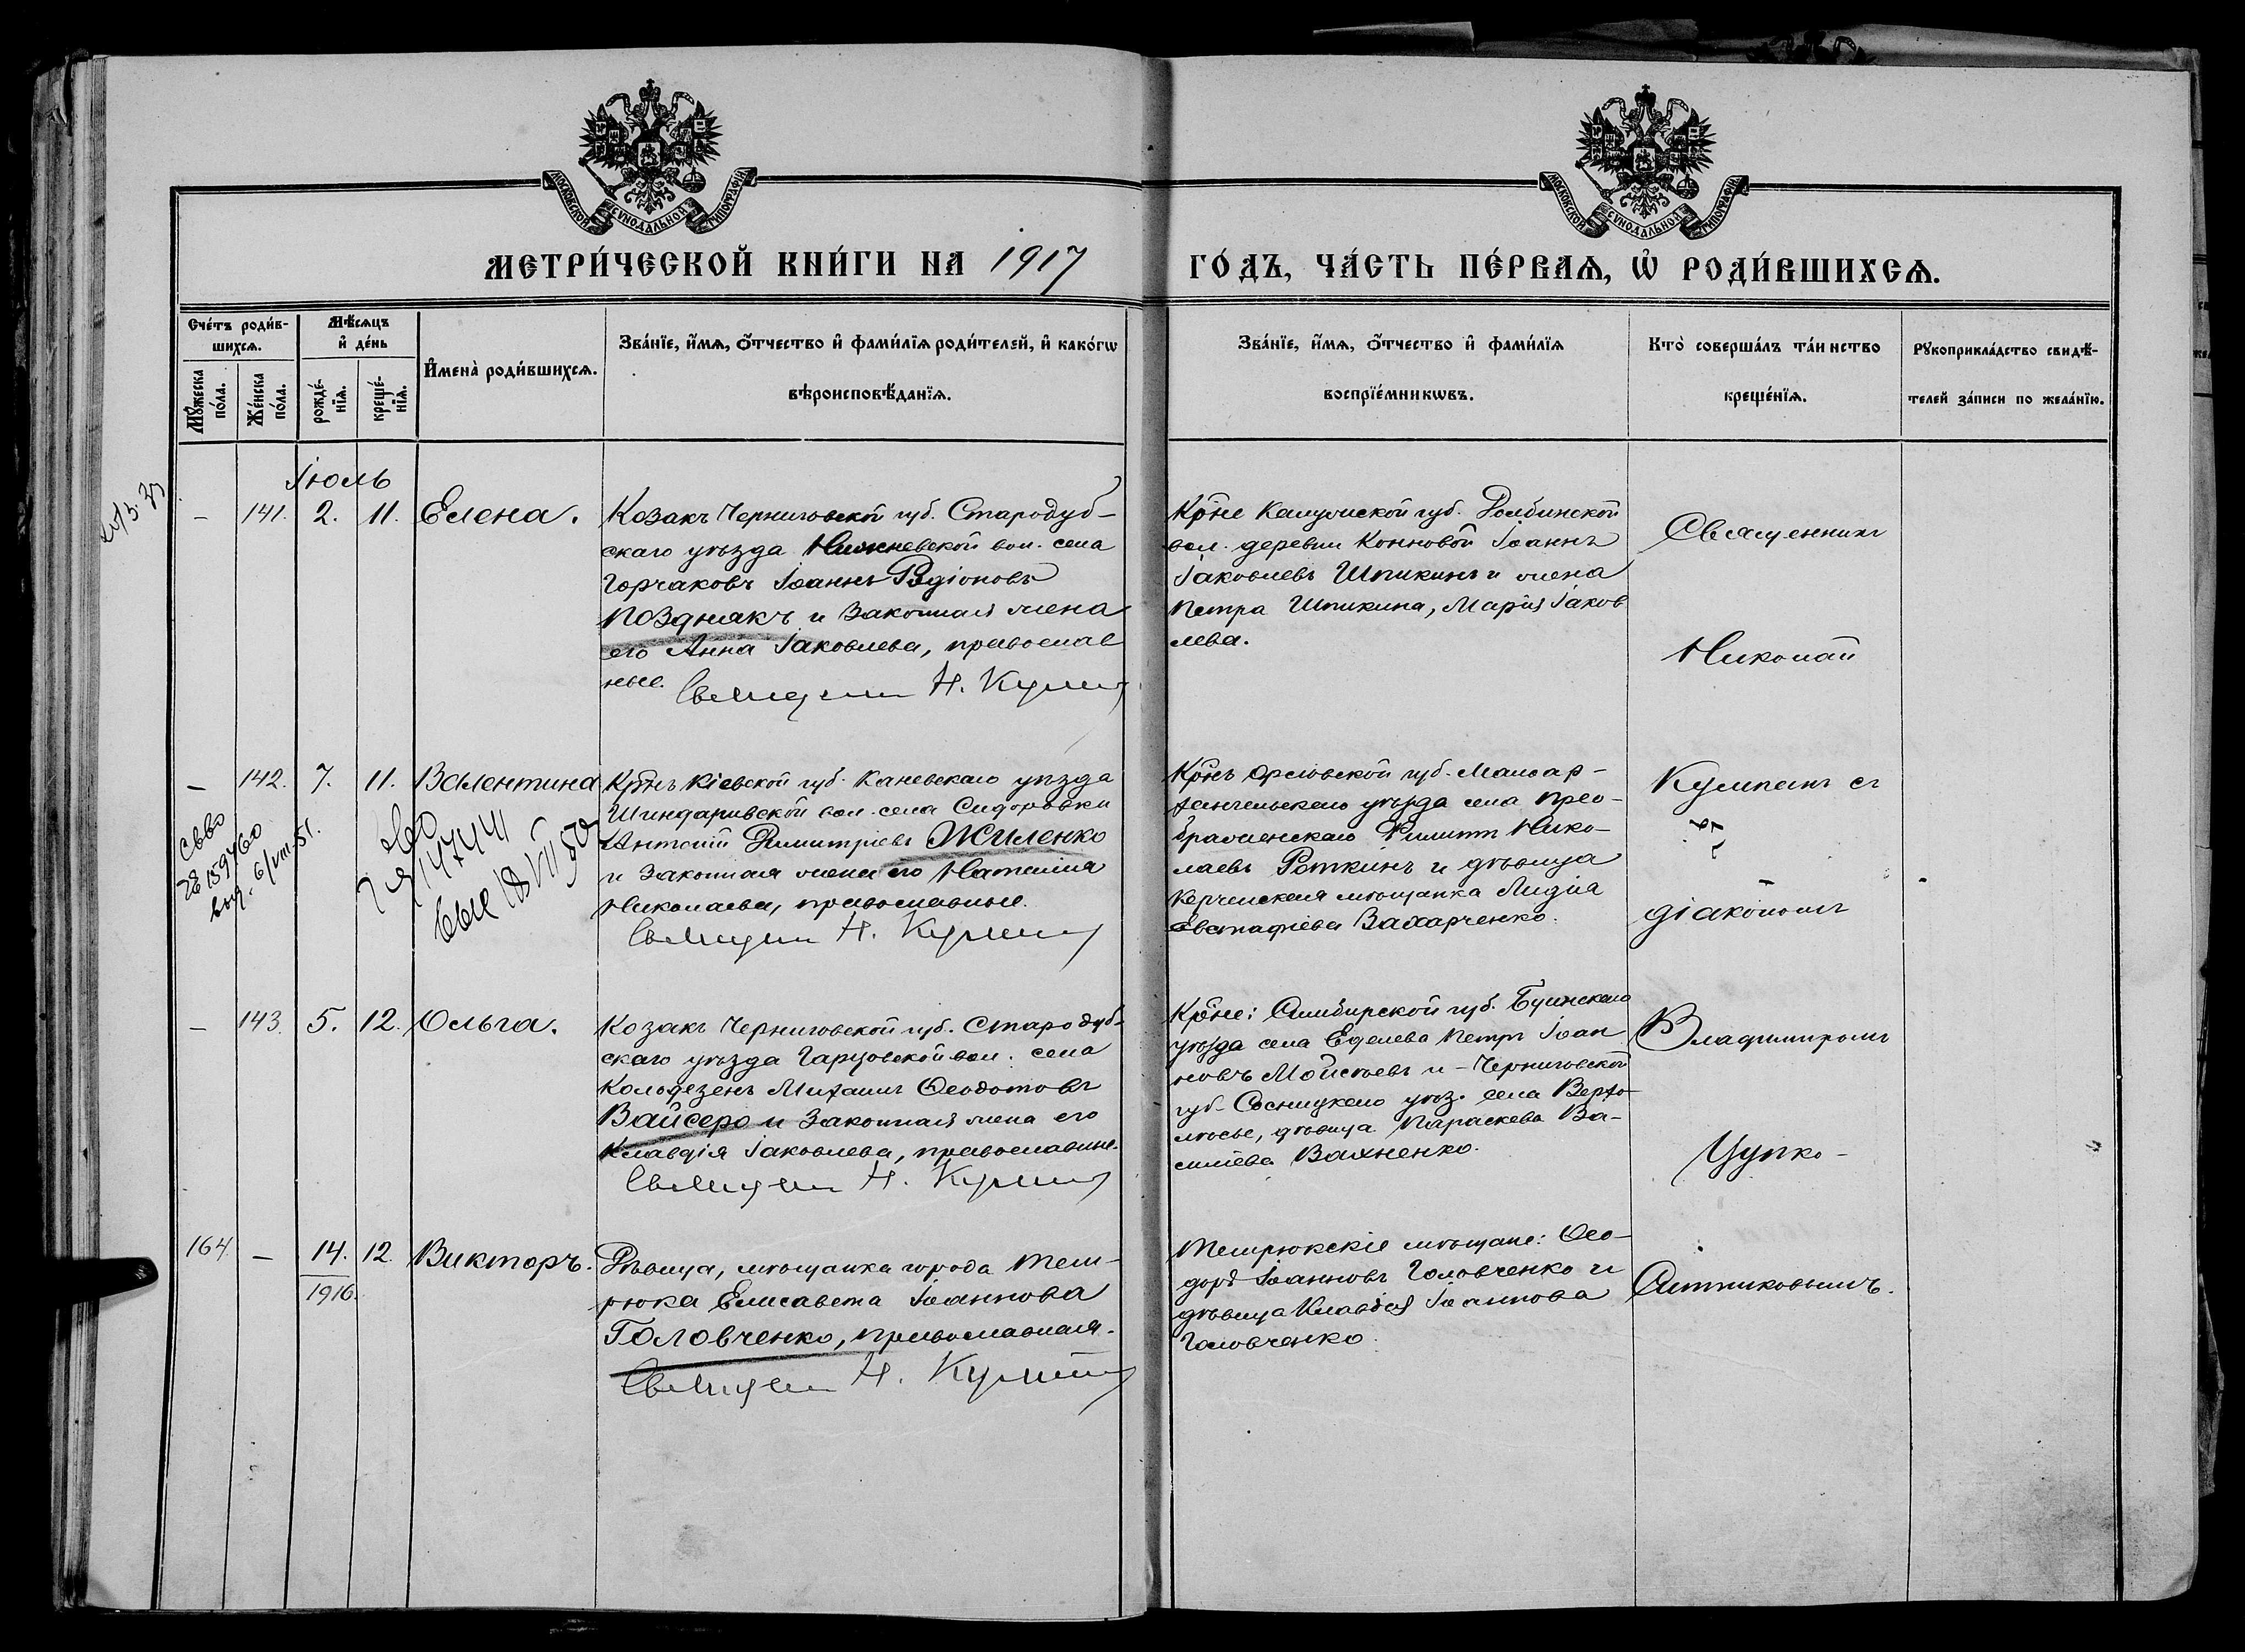 МОСКОВСКОЙ СѴНОДАЛЬНОЙ ТИПОГРАФІИ
МОСКОВСКОЙ СѴНОДАЛЬНОЙ ТИПОГРАФІИ
МЕТРИ́ЧЕСКОЙ КНИ́ГИ НА 1917
ГО́ДЪ, ЧА́СТЬ ПЕ́РВАѦ, Ѡ҆ РОДИ́ВШИХСѦ.
Сче́тъ роди́в-
шихсѧ.
Мꙋ́жеска по́ла.
Же́нска по́ла.
Мѣ́сѧцъ
и҆ де́нь
рожде́-
нїѧ.
креще́-
нїѧ.
И҆мена̀ роди́вшихсѧ.
Зва́нїе, и҆́мѧ, ѻ҆́тчество и҆ фами́лїѧ роди́телей, и҆ како́гѡ
вѣроисповѣ́данїѧ.
Зва́нїе, и҆́мѧ, ѻ҆́тчество и҆ фами́лїѧ
воспрїе́мникѡвъ.
Кто̀ соверша́лъ та́инство
креще́нїѧ.
Рꙋкоприкла́дство свидѣ́-
телей за́писи по жела́нїю.
Іюль
– 141. 2. 11. Елена.
Козакъ Черниговской губ. Стародуб-
скаго уѣзда вол. села
Горчаковъ Іоаннъ Родіоновъ
Позднякъ и законная жена
его Анна Іаковлева, православ
ные.
Н.
Крѣне Калужской губ.
вол. деревни Конновой Іоаннъ
Іаковлевъ Шпикинъ и жена
Петра Шпикина, Марія Іаков
лева.
Священникъ
Николай
– 142. 7. 11. Валентина
Крѣнъ Кіевской губ. Каневскаго уѣзда
вол. села Сидоровки
Антоній Димитріевъ Жиленко
и законная жена его Наталія
Николаева, православные.
Н.
Крѣнъ Орловской губ. Малоар-
хангельскаго уѣзда села Прео-
браженскаго Филиппъ Нико-
лаевъ Роткинъ и дѣвица
Керченская мѣщанка Лидія
Евстафіева Захарченко.
съ
діакономъ
– 143. 5. 12. Ольга.
Козакъ Черниговской губ. Стародуб-
скаго уѣзда Гарцовской вол. села
Колодезенъ Михаилъ Ѳеодотовъ
Вайсеро и законная жена его
Клавдія Іаковлева, православные.
Н.
Крѣне: Симбирской губ. Буинскаго
уѣзда села Еделева Петръ Іоан
новъ Мойсѣевъ и – Черниговской
губ. Сосницкаго уѣз. села Верхо-
лѣсье, дѣвица Параскева Ва-
силіева Вахненко.
Владиміромъ
Цупко-
164. – 14. 12. Викторъ.
1916.
Дѣвица, мѣщанка города Тем-
рюка Елисавета Іоаннова
Головченко, православная.
Н.
Темрюкскіе мѣщане: Ѳео-
доръ Іоанновъ Головченко и
дѣвица Клавдія Іоаннова
Головченко.